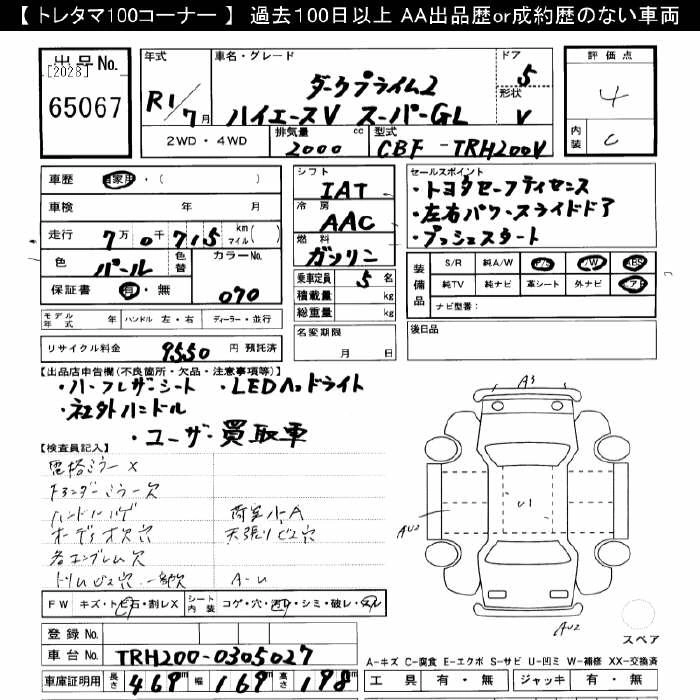 【 トレタマ100コーナー 】 過去100日以上 AA出品歴or成約歴のない車両
出品No.
[2028]
65067
年式
R1/7月
車名・グレード
ダークプライム2
ハイエースV スーパーGL
ドア
5
形状
V
評価点
4
内装
C
2WD・4WD
排気量
2000 cc
型式
CBF-TRH200V
車歴
自家用・( )
車検 年 月
走行 7万0千715 km マイル( )
色 パール
色替
カラーNo.
070
保証書 有・無
シフト
IAT
冷房
AAC
燃料
ガソリン
乗車定員 5 名
積載量 kg
総重量 kg
セールスポイント
・トヨタセーフティセンス
・左右パワースライドドア
・プッシュスタート
装備品
S/R 純A/W P/S P/W ABS
純TV 純ナビ 革シート 外ナビ エアB
ナビ型番：
モデル年式 年 ハンドル 左・右 ディーラー・並行
名変期限
月 日
後日品
リサイクル料金 9550 円 預託済
【出品店申告欄(不良箇所・欠品・注意事項等)】
・ハーフレザーシート ・LEDヘッドライト
・社外ハンドル
・ユーザー買取車
【検査員記入】
電格ミラーX
アンダーミラー欠
ハンドルハゲ
オーディオ欠穴
各エンブレム欠
トリムビス穴 一部欠
荷室小A
天張りビス穴
A-U
FW キズ・トビ石・割レX
シート内装 コゲ・穴・汚レ・シミ・破レ・スレ
登録No.
車台No. TRH200-0305027
車庫証明用 長さ 469m 幅 169m 高さ 198m
A3
U1
AU2
AU2
スペア
A-キズ C-腐食 E-エクボ S-サビ U-凹ミ W-補修 XX-交換済
工具 有・無 ジャッキ 有・無